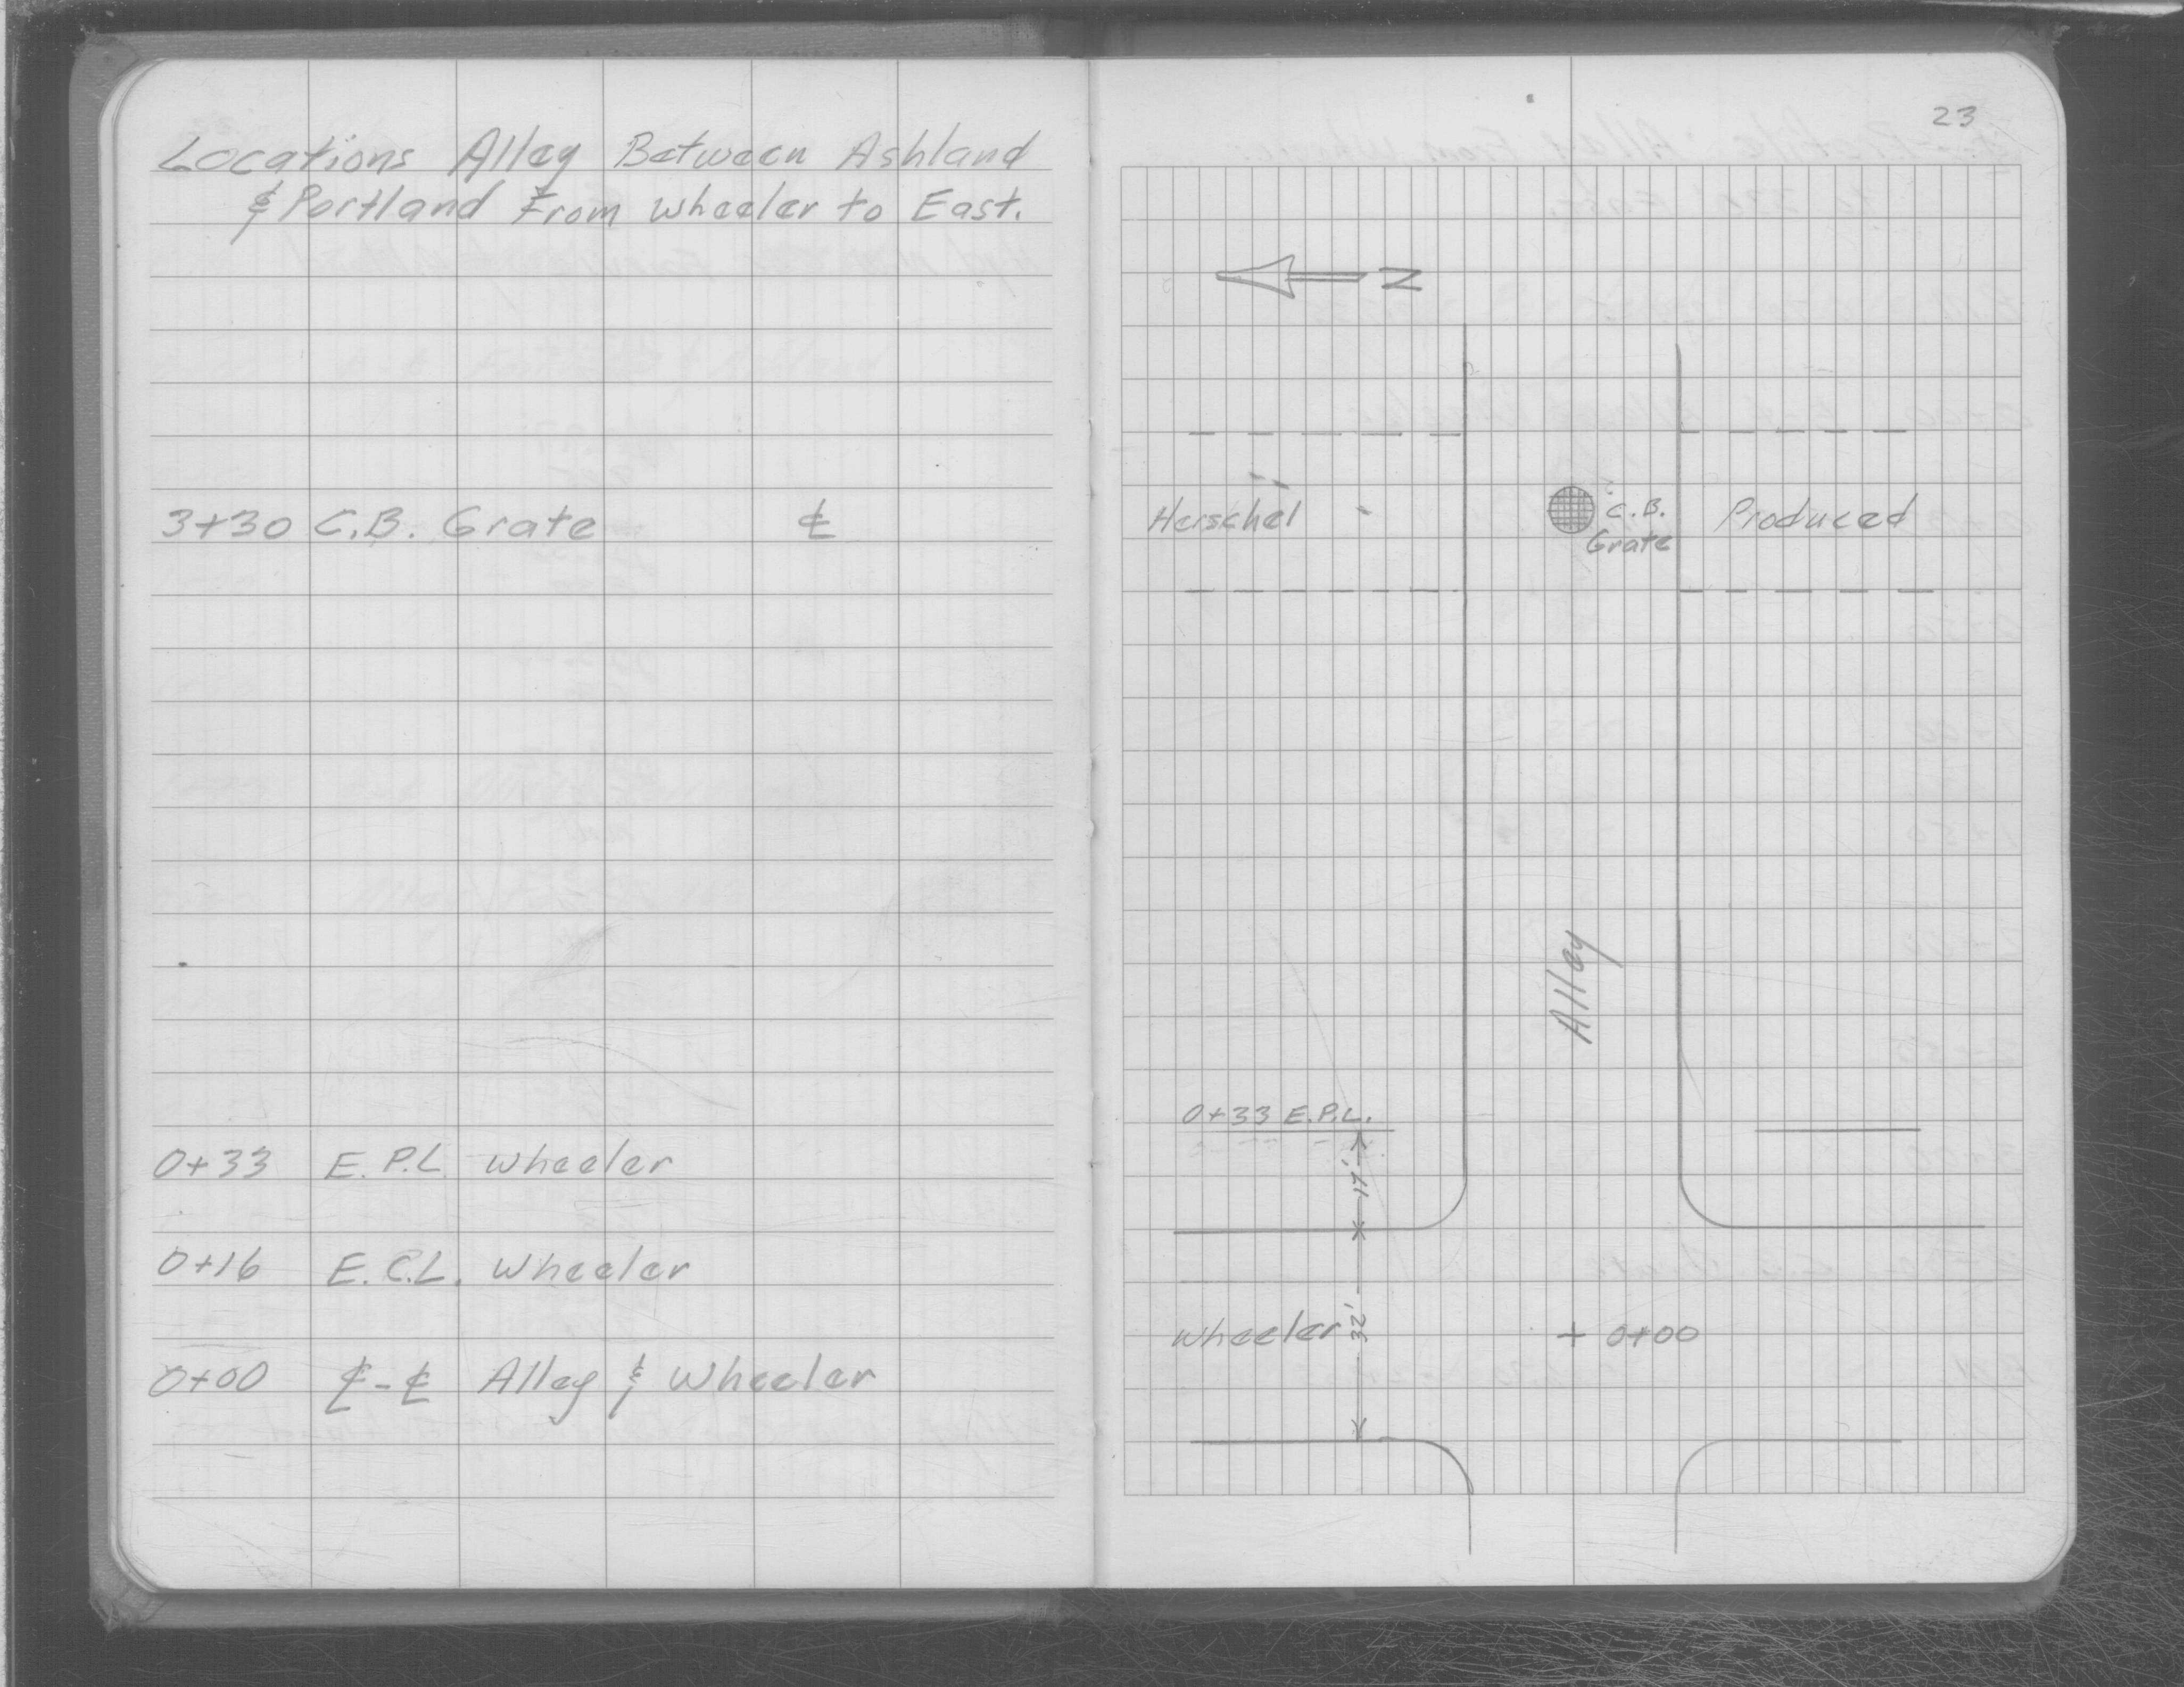 Locations Alley Between Ashland
& Portland From Wheeler to East.
3+30 C.B. Grate ℄
0+33 E.P.L. Wheeler
0+16 E.C.L. Wheeler
0+00 ℄-℄ Alley & Wheeler
23
N
Herschel
C.B.
Grate
Produced
Alley
0+33 E.P.L.
17'
Wheeler
32'
+ 0+00